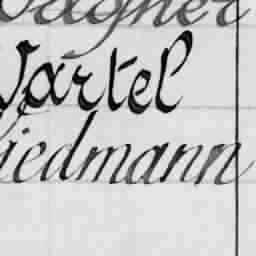 Wagner
Wärtel
iedmann